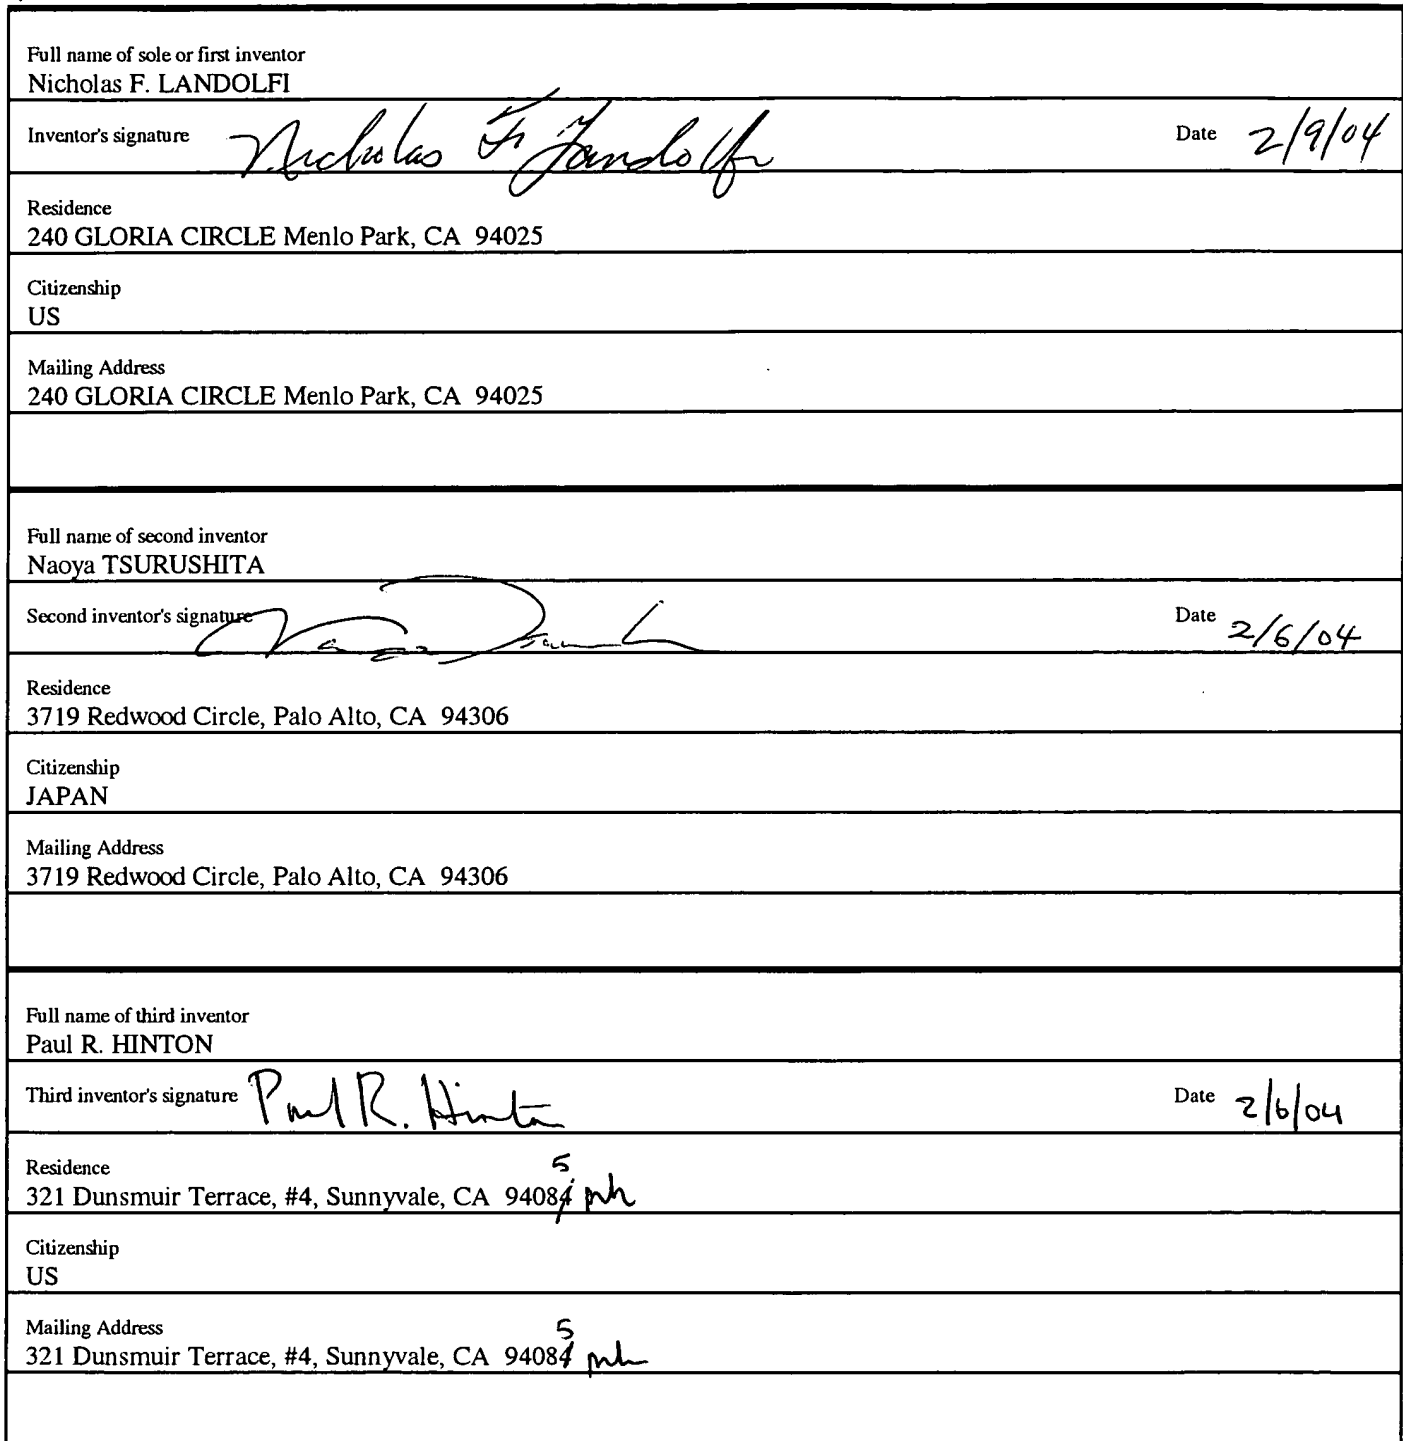 Full name of sole or first inventor
Nicholas F. LANDOLFI
Inventor's signature Nicholas F. Landolfi Date 2/9/04
Residence
240 GLORIA CIRCLE Menlo Park, CA 94025
Citizenship
US
Mailing Address
240 GLORIA CIRCLE Menlo Park, CA 94025
Full name of second inventor
Naoya TSURUSHITA
Second inventor's signature Date 2/6/04
Residence
3719 Redwood Circle, Palo Alto, CA 94306
Citizenship
JAPAN
Mailing Address
3719 Redwood Circle, Palo Alto, CA 94306
Full name of third inventor
Paul R. HINTON
Third inventor's signature Paul R. Hinton Date 2/6/04
Residence
5
321 Dunsmuir Terrace, #4, Sunnyvale, CA 94084 prh
Citizenship
US
Mailing Address
5
321 Dunsmuir Terrace, #4, Sunnyvale, CA 94084 prh